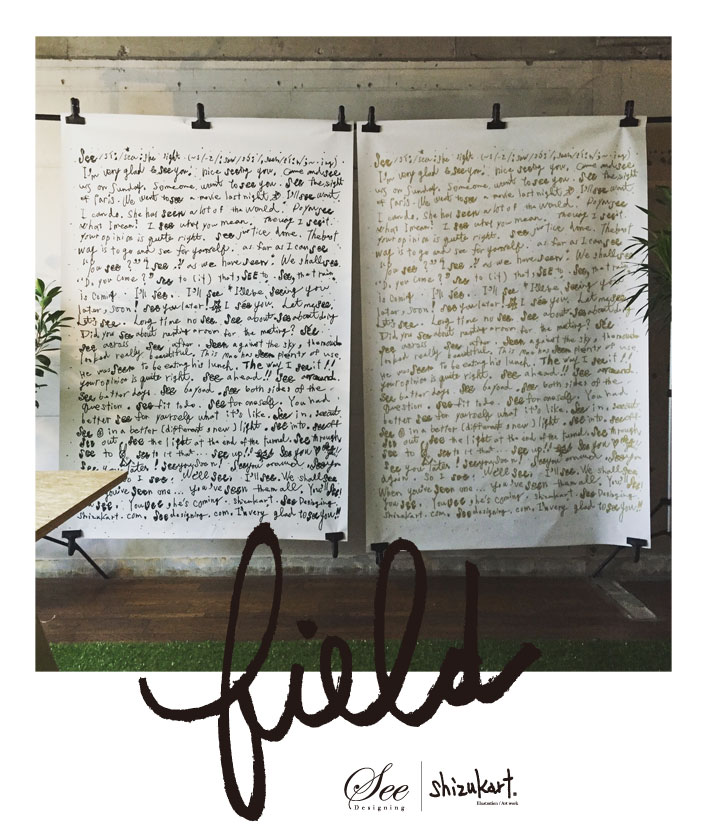 See /sí:/ sea; the sight.
I'm very glad to see you! nice seeing you, come and see
us on Sunday. Someone wants to see you. See the sight
of Paris. We went to see a movie last night. I'll see want
I can do. She has seen a lot of the world. Do you see
what I mean? I see what you mean. The way I see it.
Your opinion is quite right. See justice done. The best
way is to go and see for yourself. as far as I can see
"Do you come?" See to (it) that, SEE to. See, the train
is coming. I'll see. I'll see I'll be seeing you
later, soon! see you later! I see you. Let me see,
Let's see. Long time no see. See about
Did you see about meeting a room for the meeting? See
see across. See after. Seen against the sky, the mountain
looked really beautiful. This has seen plenty of use.
He was seen to be eating his lunch. The way I see it!!
your opinion is quite right. See ahead!! See around.
See better days. See beyond. See both sides of the
question. See fit to do. See for oneself. You had
better see for yourself what it's like. See in. see out
See in a better (different & new) light. See into. See off
see out. See the light at the end of the tunnel. See through,
see to it that... see up!!
See you later! See you soon! See you around. See you
So I see. Well See. I'll see. We shall see
When you've seen one... you've seen them all. You'll see!
see. You see, he's coming. shizukart. See Designing
shizukart.com. See designing.com. I'm very glad to see you!!
See /sí:/ sea; the sight.
I'm very glad to see you! nice seeing you, Come and see
us on Sunday. Someone wants to see you. See the sight
of Paris. We went to see a movie last night. I'll see want
I can do. She has seen a lot of the world. Do you see
what I mean? I see what you mean. The way I see it.
Your opinion is quite right. See justice done. The best
way is to go and see for yourself. as far as I can see
"Do you come?" See to (it) that, SEE to. See, the train
is coming. I'll see. I'll see I'll be seeing you
later, soon! see you later! I see you. Let me see,
Let's see. Long time no see. See about
Did you see about meeting a room for the meeting? See
see across. See after. Seen against the sky, the mountain
looked really beautiful. This has seen plenty of use.
He was seen to be eating his lunch. The way I see it!!
your opinion is quite right. See ahead!! See around.
See better days. See beyond. See both sides of the
question. See fit to do. See for oneself. You had
better see for yourself what it's like. See in. see out
See in a better (different & new) light. See into. See off
see out. See the light at the end of the tunnel. See through,
see to it that... see up!!
See you later! See you soon! See you around. See you
again. So I see. Well See. I'll see. We shall see
When you've seen one... you've seen them all. You'll see!
see. You see, he's coming. shizukart. See Designing
shizukart.com. See designing.com. I'm very glad to see you!!
field
See
Designing
shizukart.
Illustration / Art work